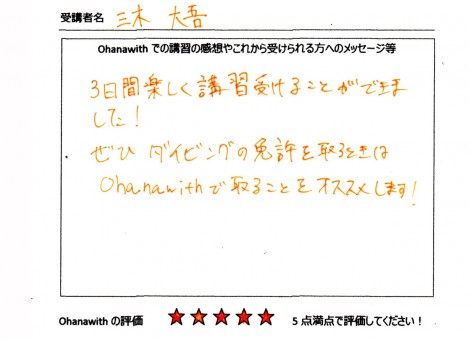 受講者名 三木 大吾
Ohanawith での講習の感想やこれから受けられる方へのメッセージ等
3日間楽しく講習受けることができま
した!
ぜひ ダイビングの免許を取るときは
Ohanawithで取ることをオススメします!
Ohanawith の評価 ★★★★★ 5 点満点で評価してください!